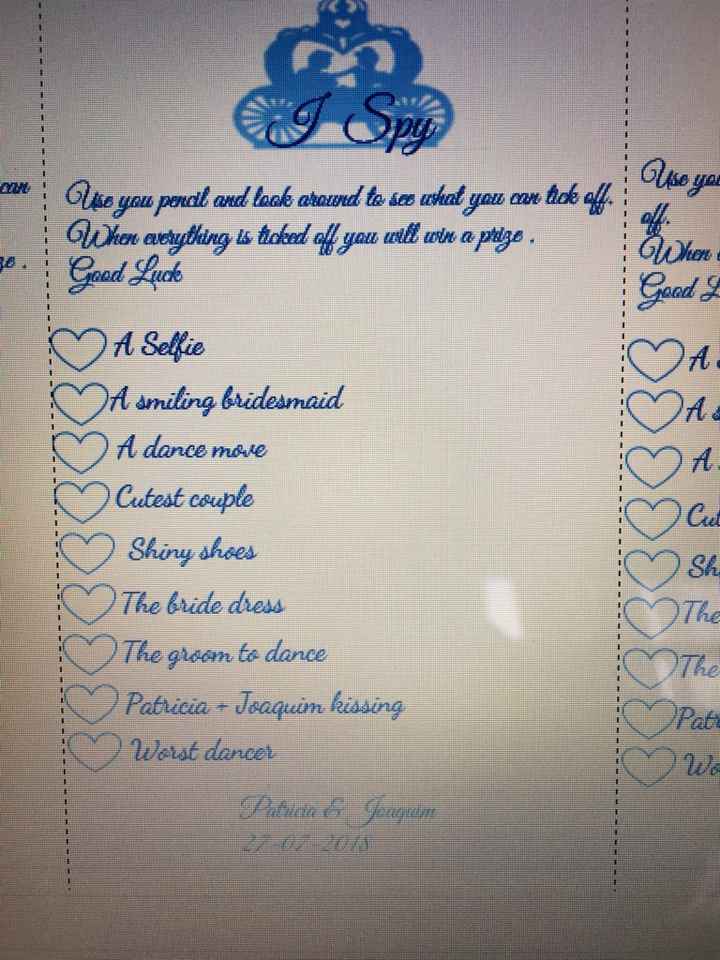 I Spy
can
ze .
Use you pencil and look around to see what you can tick off.
When everything is ticked off you will win a prize .
Good Luck
A Selfie
A smiling bridesmaid
A dance move
Cutest couple
Shiny shoes
The bride dress
The groom to dance
Patricia + Joaquim kissing
Worst dancer
Patricia & Joaquim
27-07-2018
Use you
off.
When
Good L
A
A s
A
Cut
Sh
The
The
Pat
Wo